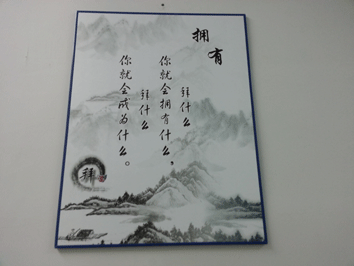 拥有
拜什么
你就会拥有什么，
拜什么
你就会成为什么。
拜